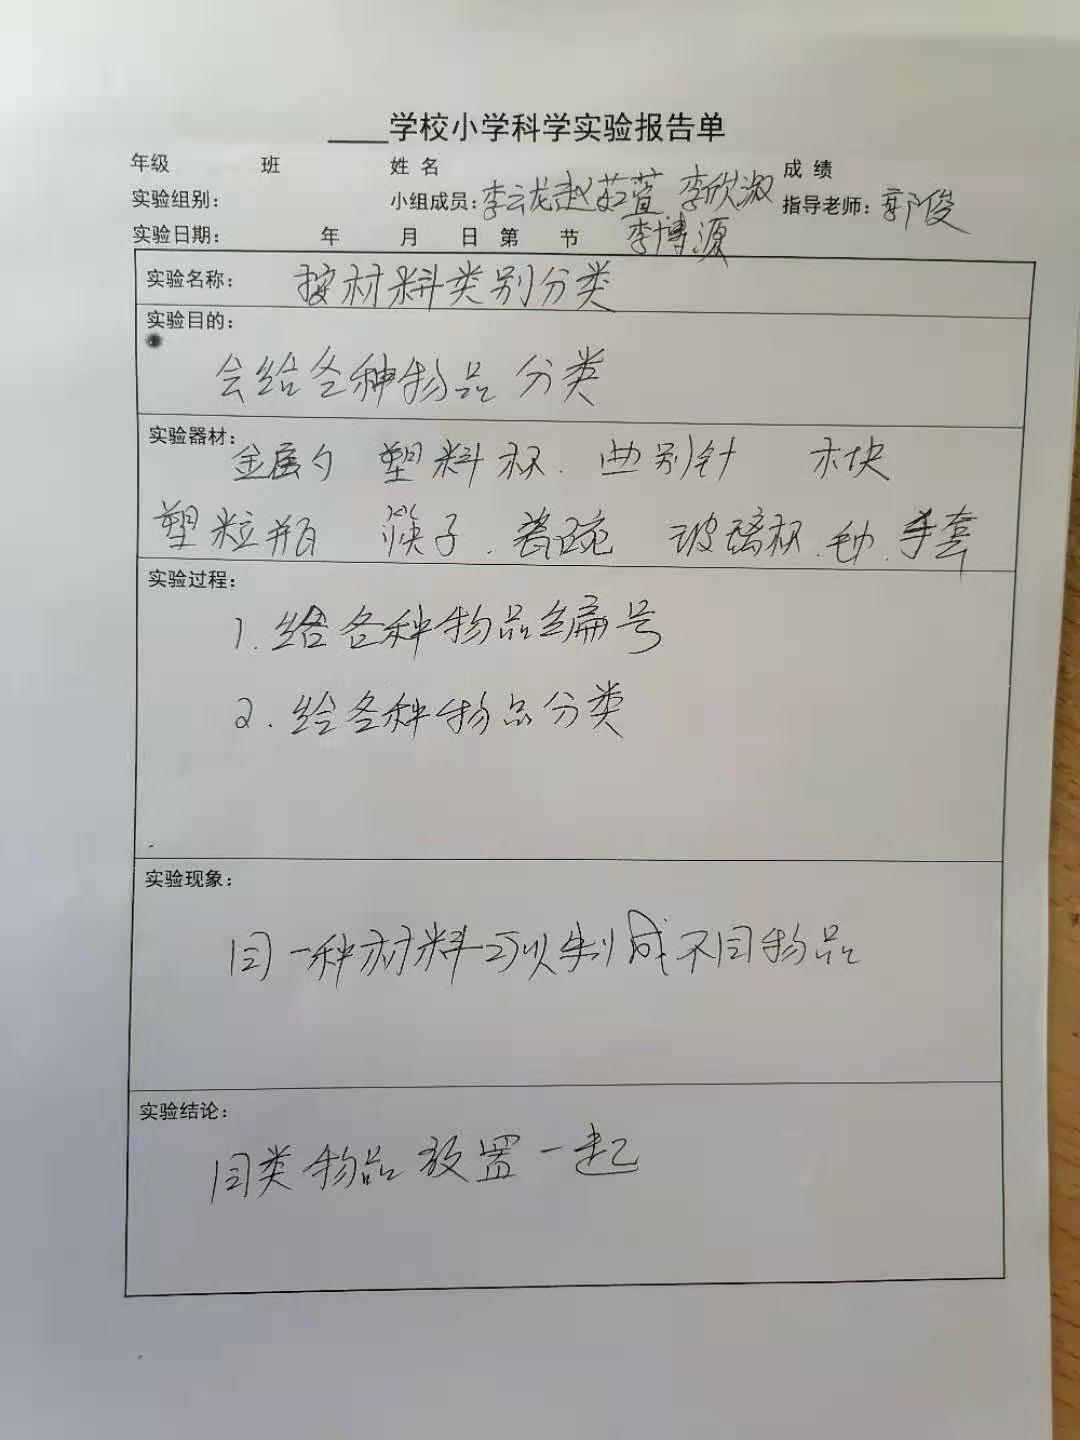 ____学校小学科学实验报告单
年级 班 姓名 成绩
实验组别: 小组成员:李云龙赵茹萱 李欣淑 指导老师:郭俊
李博源
实验日期: 年 月 日 第 节
实验名称: 按材料类别分类
实验目的:
会给各种物品分类
实验器材:
金属勺 塑料杯. 曲别针 木块
塑粒瓶 筷子. 瓷碗 玻璃杯. 毛巾. 手套
实验过程:
1. 给各种物品编号
2. 给各种物品分类
实验现象:
同一种材料可以制成不同物品
实验结论:
同类物品放置一起